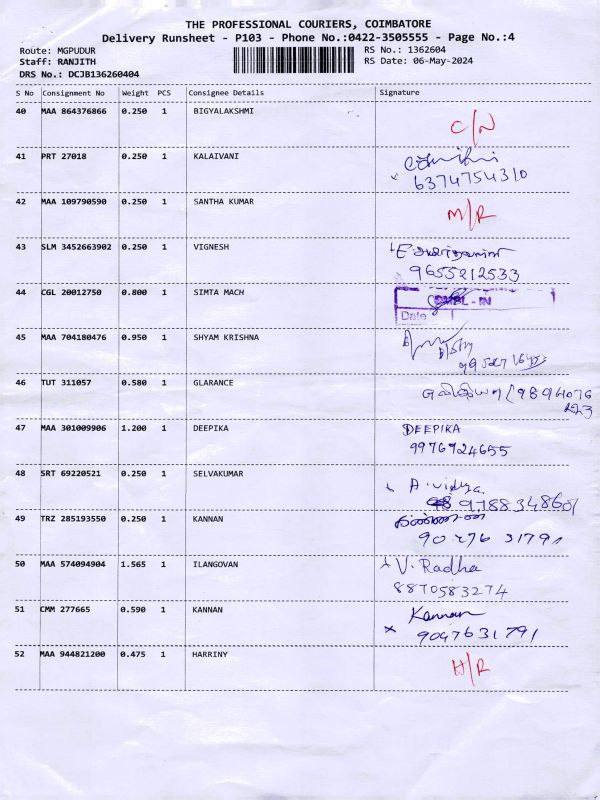 THE PROFESSIONAL COURIERS, COIMBATORE
Delivery Runsheet - P103 - Phone No.:0422-3505555 - Page No.:4
Route: MGPUDUR RS No.: 1362604
Staff: RANJITH RS Date: 06-May-2024
DRS No.: DCJB136260404
S No Consignment No Weight PCS Consignee Details Signature
40 MAA 864376866 0.250 1 BIGYALAKSHMI
C/N
41 PRT 27018 0.250 1 KALAIVANI
6374754310
42 MAA 109790590 0.250 1 SANTHA KUMAR
M/R
43 SLM 3452663902 0.250 1 VIGNESH
9655212533
44 CGL 20012750 0.800 1 SIMTA MACH
- IN
Date
45 MAA 704180476 0.950 1 SHYAM KRISHNA
46 TUT 311057 0.580 1 GLARANCE
47 MAA 301009906 1.200 1 DEEPIKA DEEPIKA
9976724655
48 SRT 69220521 0.250 1 SELVAKUMAR
A. vidya
49 TRZ 285193550 0.250 1 KANNAN
50 MAA 574094904 1.565 1 ILANGOVAN V. Radha
8870583274
51 CMM 277665 0.590 1 KANNAN Kannan
9047631791
52 MAA 944821200 0.475 1 HARRINY
H/R